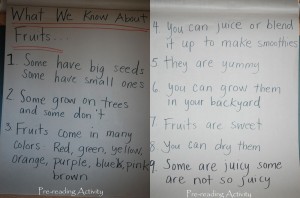 What We Know About
Fruits...
1. Some have big seeds
some have small ones
2 Some grow on trees
and some don't
3 Fruits come in many
colors. Red, green, yellow,
orange, purple, blue, pink
brown
Pre-reading Activity
4. you can juice or blend
it up to make smoothies
5 They are yummy
6. you can grow them
in your backyard
7. Fruits are sweet
8 You can dry them
9. Some are juicy some
are not so juicy
Pre-reading Activity